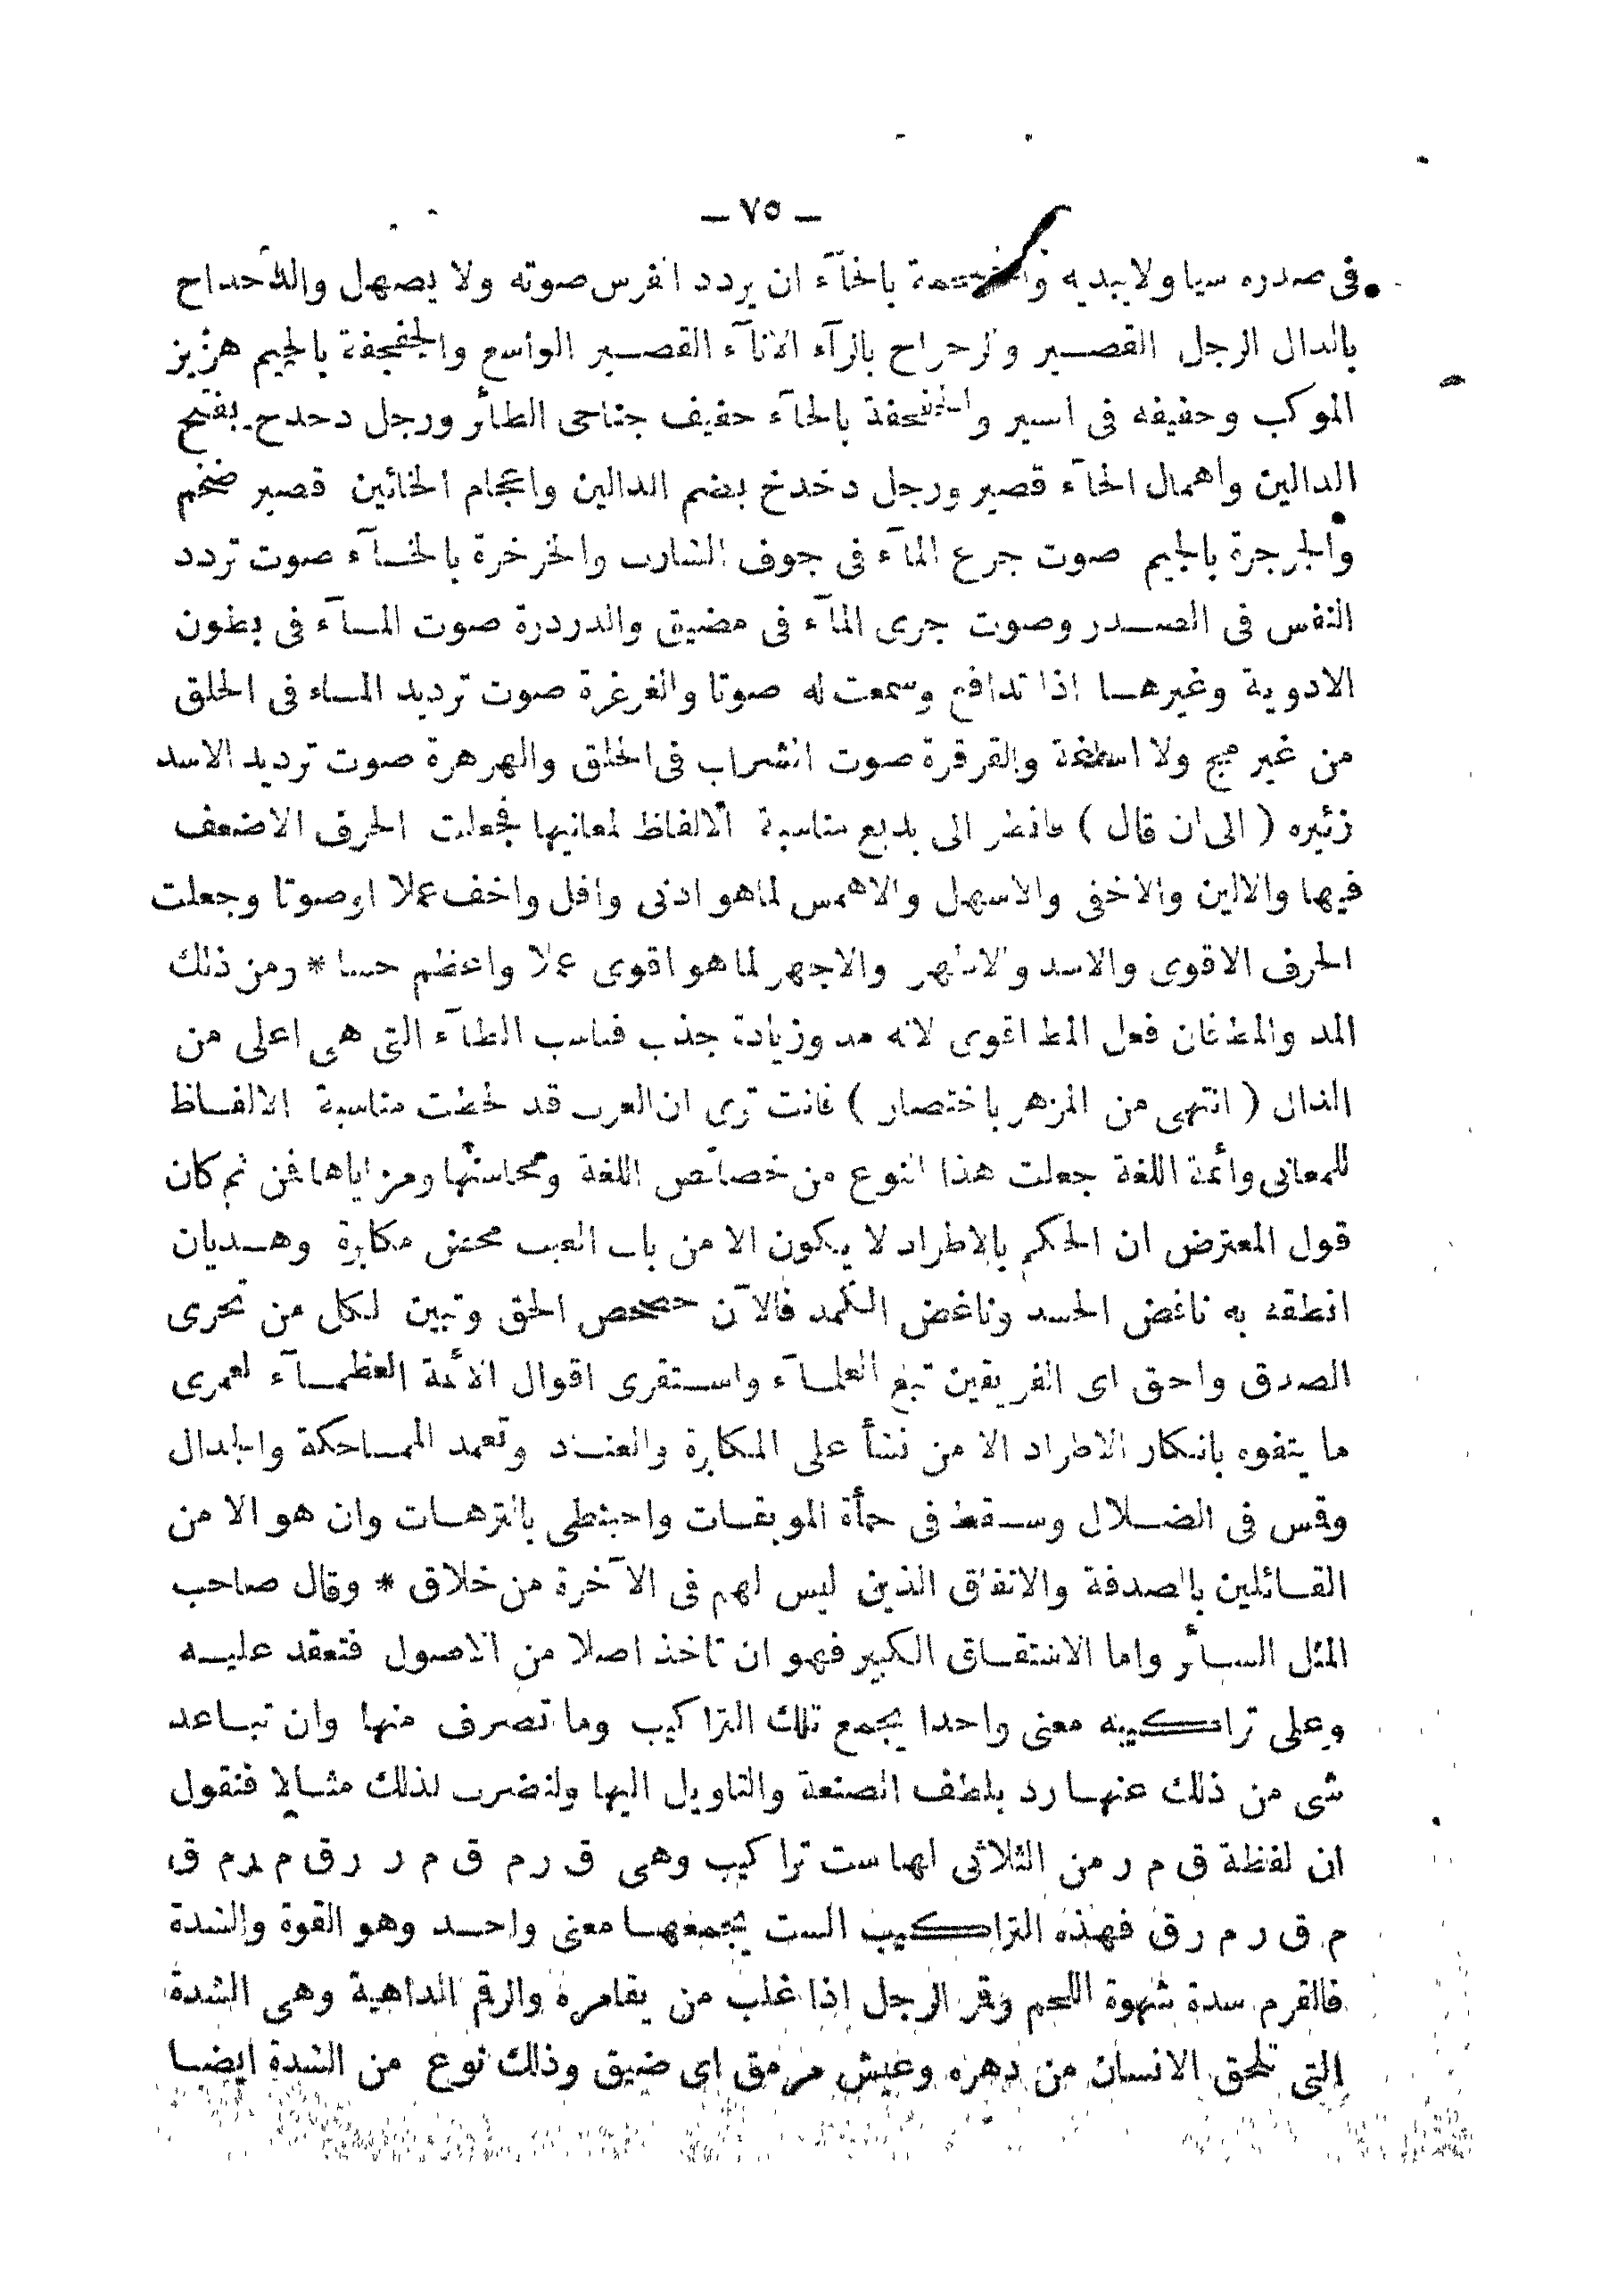 — ٧٥ —
فى صدره سيا ولا يبديه بالخآء ان يردد الفرس صوته ولا يصهل والدحداح
بالدال الرجل القصير والرحراح بالرآء الانآء القصير الواسع والجفجفة بالجيم هزيز
الموكب وحفيفه فى السير والحفحفة بالحآء حفيف جناحى الطائر ورجل دحدح بفتح
الدالين واهمال الحآء قصير ورجل دخدخ بضم الدالين واعجام الخائين قصير ضخم
والجرجرة بالجيم صوت جرع المآء فى جوف الشارب والخرخرة بالخآء صوت تردد
النفس فى الصدر وصوت جرى المآء فى مضيق والدردرة صوت المآء فى بطون
الادوية وغيرها اذا تدافع وسمعت له صوتا والغرغرة صوت ترديد الماء فى الحلق
من غير مج ولا اساغة والقرقرة صوت الشراب فى الحلق والهرهرة صوت ترديد الاسد
زئيره ( الى ان قال ) فانظر الى بديع مناسبة الالفاظ لمعانيها فجعلت الحرف الاضعف
فيها والالين والاخفى والاسهل والاهمس لما هو ادنى واقل واخف عملا او صوتا وجعلت
الحرف الاقوى والاشد والاظهر والاجهر لما هو اقوى عملا واعظم حسا * ومن ذلك
المد والمط فان فعل المط اقوى لانه مد وزيادة جذب فناسب الطآء التى هى اعلى من
الدال ( انتهى من المزهر باختصار ) فانت ترى ان العرب قد لحظت مناسبة الالفاظ
للمعانى وأئمة اللغة جعلت هذا النوع من خصائص اللغة ومحاسنها ومزاياها فمن ثم كان
قول المعترض ان الحكم بالاطراد لا يكون الا من باب العبث محض مكابرة وهديان
انطقه به ناغض الحسد وناغض الكمد فالآن حصحص الحق وتبين لكل من تحرى
الصدق واحق اى الفريقين تبع العلمآء واستقرى اقوال الائمة العظمآء لعمرى
ما يتفوه بانكار الاطراد الا من نشأ على المكابرة والعناد وتعمد المماحكة والجدال
وقس فى الضلال وسقط فى حمأة الموبقات واحبنطى بالترهات وان هو الا من
القائلين بالصدفة والاتفاق الذين ليس لهم فى الآخرة من خلاق * وقال صاحب
المثل السائر واما الاشتقاق الكبير فهو ان تاخذ اصلا من الاصول فتعقد عليه
وعلى تراكيبه معنى واحدا يجمع تلك التراكيب وما تصرف منها وان تباعد
شى من ذلك عنها رد بلطف الصنعة والتاويل اليها ولنضرب لذلك مثالا فنقول
ان لفظة ق م ر من الثلاثى لها ست تراكيب وهى ق ر م ق م ر ر ق م ر م ق
م ق ر م ر ق فهذه التراكيب الست يجمعها معنى واحد وهو القوة والشدة
فالقرم شدة شهوة اللحم وقمر الرجل اذا غلب من يقامره والرقم الداهية وهى الشدة
التى تلحق الانسان من دهره وعيش مرمق اى ضيق وذلك نوع من الشدة ايضا